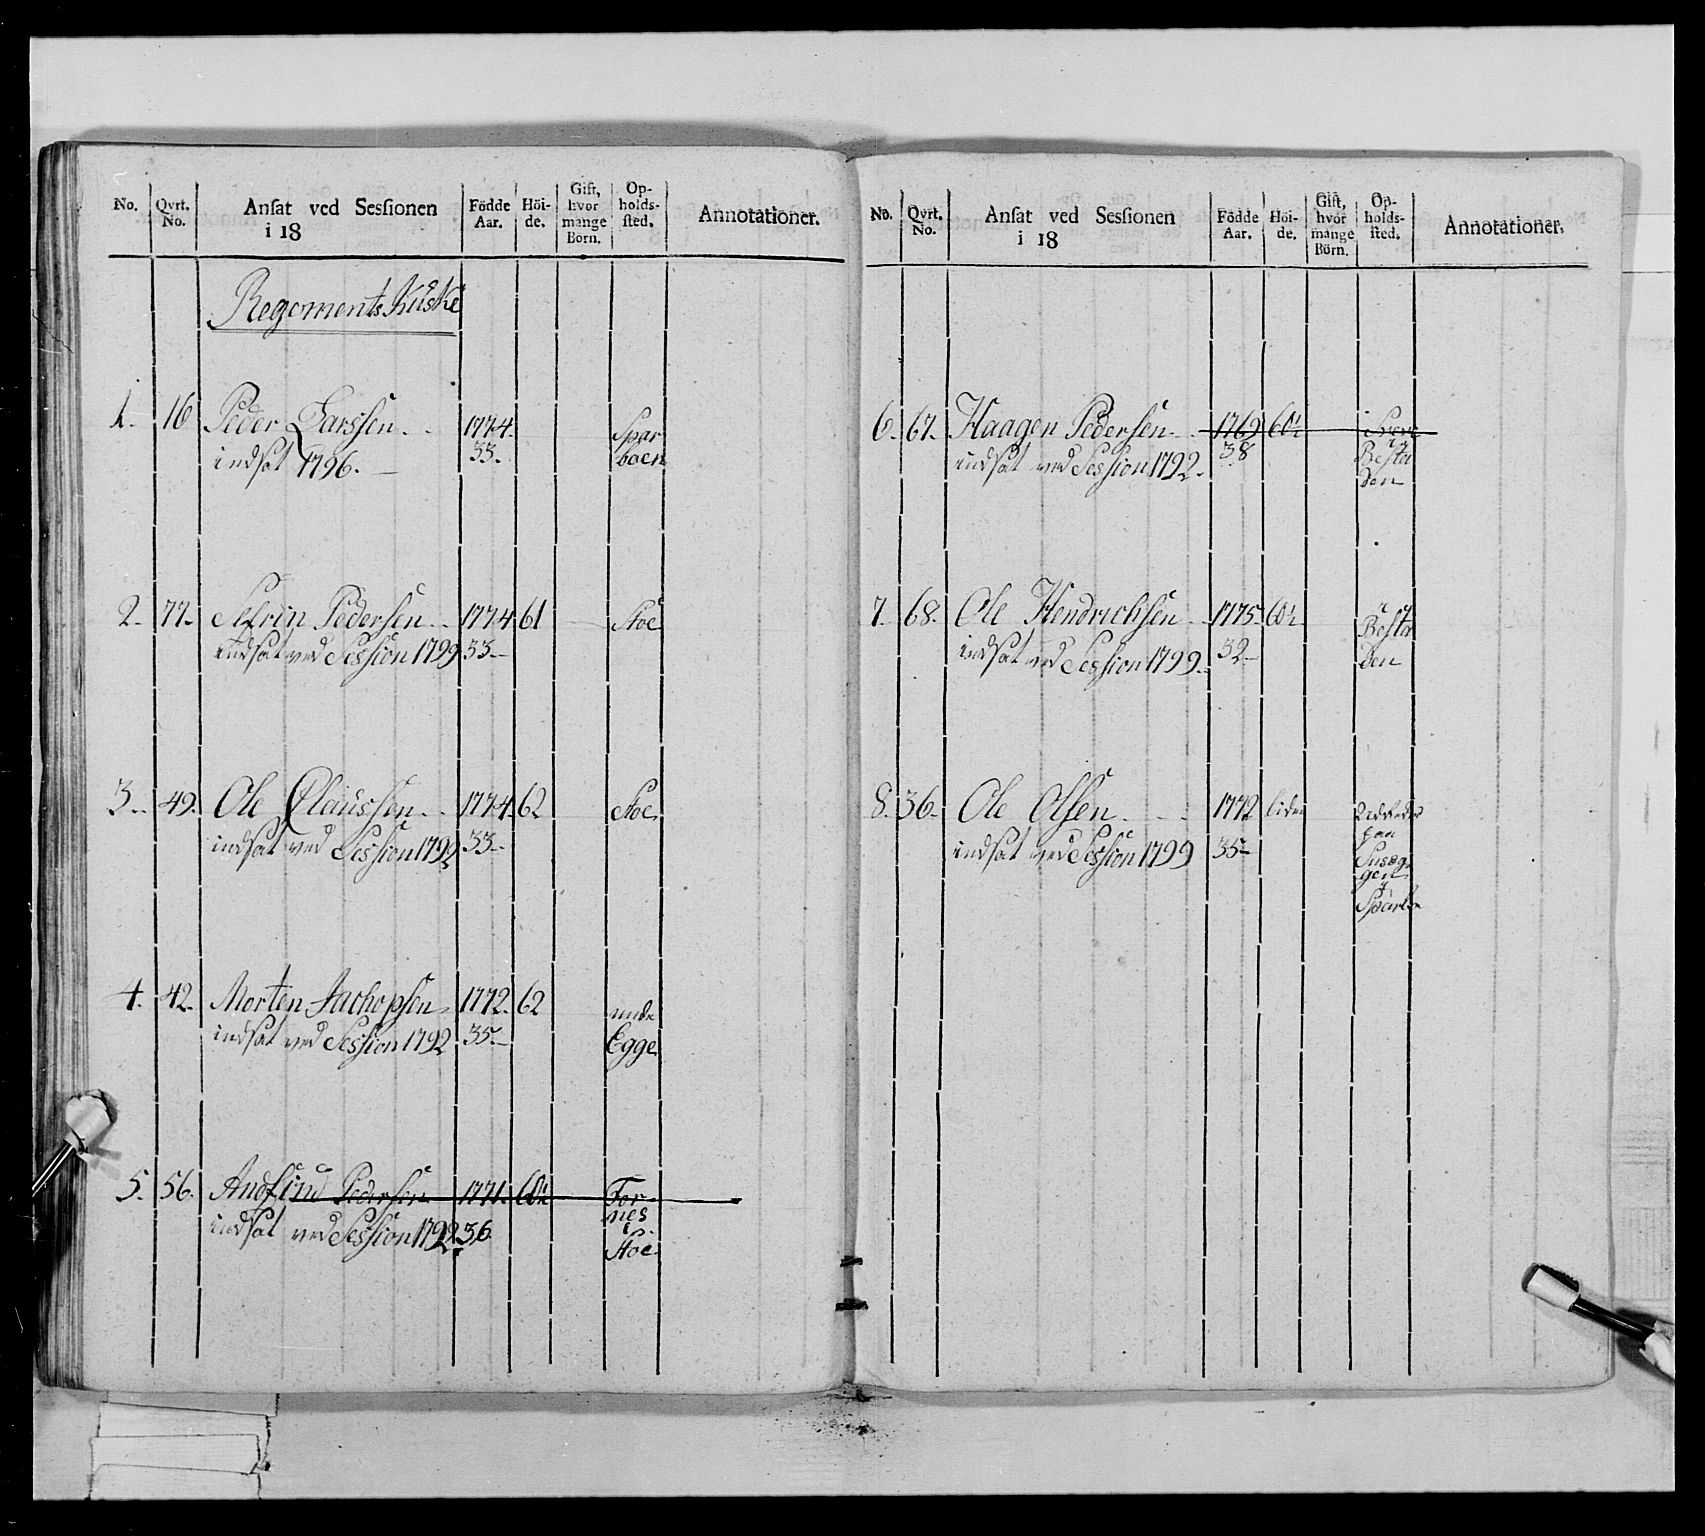 No. Qvrt. No. Ansat ved Sessionen i 18 Födde Aar. Höi- de. Gift, hvor mange Börn. Op- holds- sted. Annotationer.
Regements Kuske
1. 16 Peder Larssen. 1774. Spar
indsat 1796. 33. boen
2. 77. Sefrin Pedersen. 1774. 61 Stoe
indsat ved Session 1799 33
3. 49. Ole Claussen. 1774. 62 Stoe
indsat ved Session 1792 33
4. 42. Morten Jachopsen 1772. 62
indsat ved Session 1792 35. Egge
5. 56. Andfind Pedersen 1771. 60½ For
nes
indsat ved Session 1792 36.
Stoe
No. Qvrt. No. Ansat ved Sessionen i 18 Födde Aar. Höi- de. Gift, hvor mange Börn. Op- holds- sted. Annotationer.
6. 67. Haagen Pedersen. 1769 60½
indsat ved Session 1792. 38 Besta
den
7. 68. Ole Hendrichsen 1775 60½ Besta
indsat ved Session 1799. 32 den
8. 36. Ole Olsen. 1772
paa
indsat ved Session 1799 35
gen